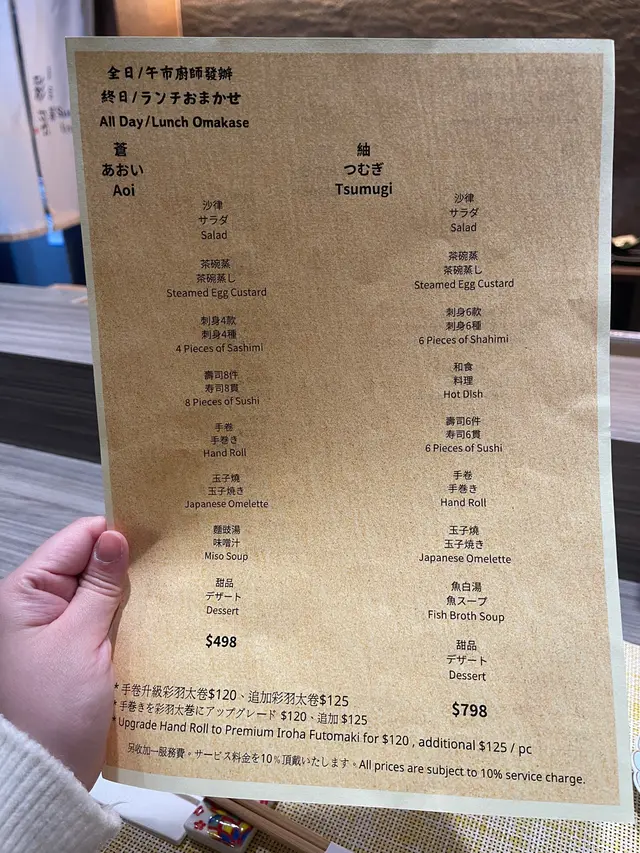 全日/午市廚師發辦
終日/ランチおまかせ
All Day/Lunch Omakase
蒼
あおい
Aoi
沙律
サラダ
Salad
茶碗蒸
茶碗蒸し
Steamed Egg Custard
刺身4款
刺身4種
4 Pieces of Sashimi
壽司8件
寿司8貫
8 Pieces of Sushi
手卷
手巻き
Hand Roll
玉子燒
玉子焼き
Japanese Omelette
麵豉湯
味噌汁
Miso Soup
甜品
デザート
Dessert
$498
紬
つむぎ
Tsumugi
沙律
サラダ
Salad
茶碗蒸
茶碗蒸し
Steamed Egg Custard
刺身6款
刺身6種
6 Pieces of Shahimi
和食
料理
Hot DIsh
壽司6件
寿司6貫
6 Pieces of Sushi
手卷
手巻き
Hand Roll
玉子燒
玉子焼き
Japanese Omelette
魚白湯
魚スープ
Fish Broth Soup
甜品
デザート
Dessert
$798
*手卷升級彩羽太卷$120、追加彩羽太卷$125
*手巻きを彩羽太巻にアップグレード $120、追加 $125
*Upgrade Hand Roll to Premium Iroha Futomaki for $120 , additional $125 / pc
另收加一服務費。サービス料金を10%頂戴いたします。All prices are subject to 10% service charge.